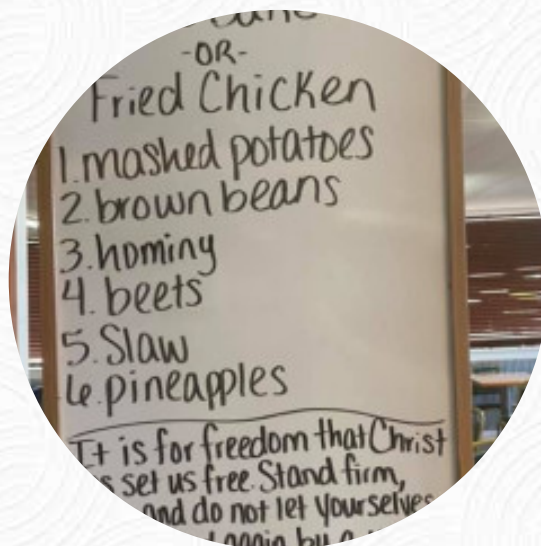 -OR-
Fried Chicken
1. mashed potatoes
2. brown beans
3. hominy
4. beets
5. Slaw
6. pineapples
It is for freedom that Christ
set us free. Stand firm,
and do not let yourselves
again by a